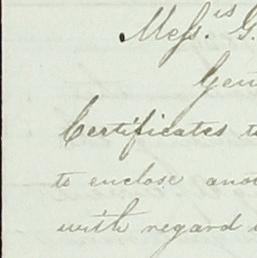 Mess.rs G.
Gen
Certificates t
to enclose ano
with regard